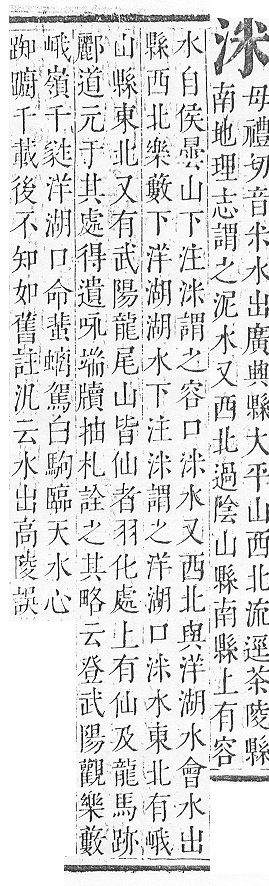 洣
母禮切音米水出廣興縣大平山西北流逕茶陵縣
南地理志謂之泥水又西北過陰山縣南縣上有容
水自侯曇山下注洣謂之容口洣水又西北與洋湖水會水出
縣西北樂藪下洋湖湖水下注洣謂之洋湖口洣水東北有峨
山縣東北又有武陽龍尾山皆仙者羽化處上有仙及龍馬跡
酈道元于其處得遺咏端牘抽札詮之其略云登武陽觀樂藪
峨嶺千蕤洋湖口命蜚螭駕白駒臨天水心
踟躕千載後不知如舊註汎云水出高陵誤